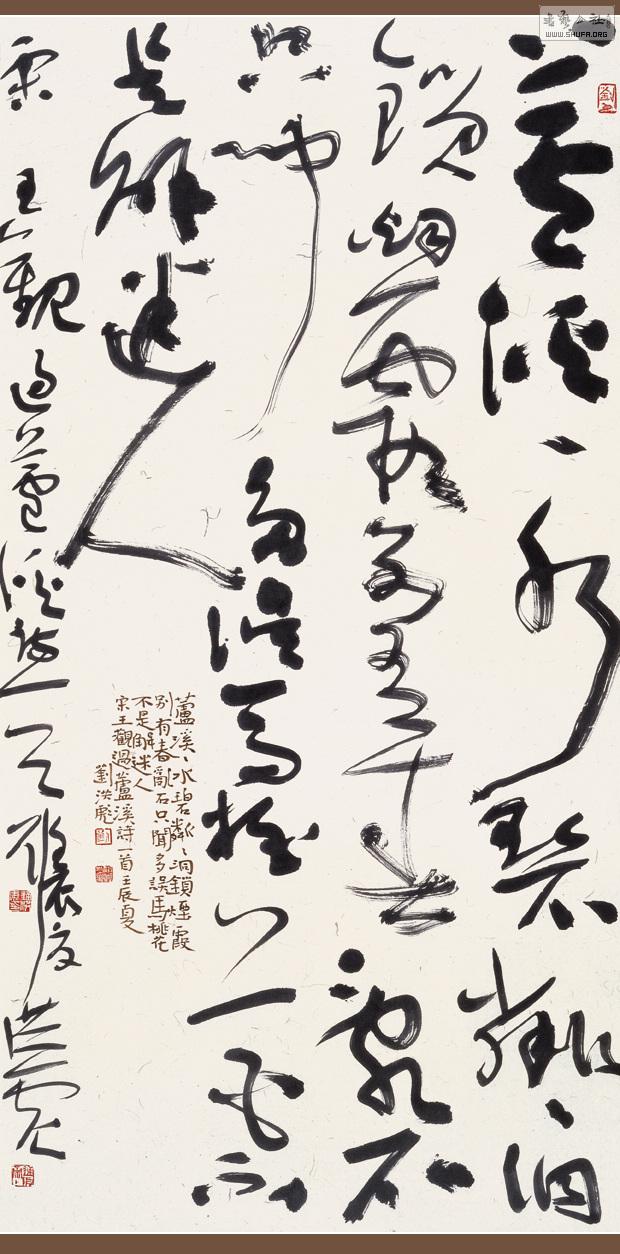 WWW.SHUFA.ORG
蘆溪、水碧粼、洞
鎖烟霞別有春亂石
只聞多誤馬桃花不
是解迷人
宋王觀過蘆溪詩一首壬辰夏洪彪
蘆溪、水碧粼、洞鎖煙霞
別有春亂石只聞多誤馬桃花
不是解迷人
宋王觀過蘆溪詩一首壬辰夏
劉洪彪